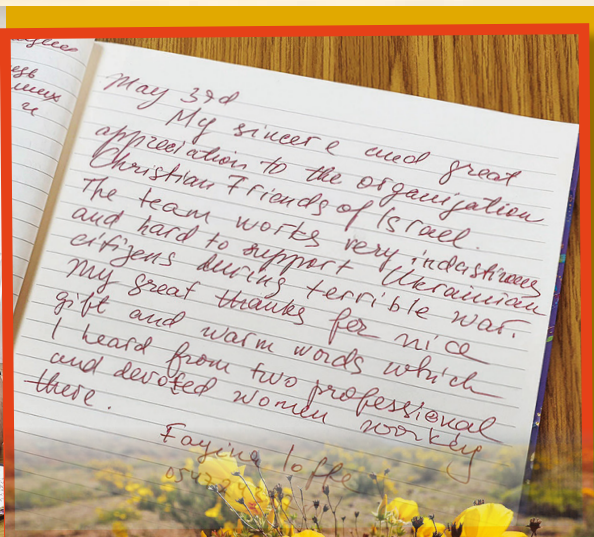 May 3rd
My sincere and great
appreciation to the organization
Christian Friends of Israel.
The team works very
and hard to support Ukrainian
citizens during terrible war.
My great thanks for nice
gift and warm words which
I heard from two professional
and devoted women working
there.
Fayina Ioffe